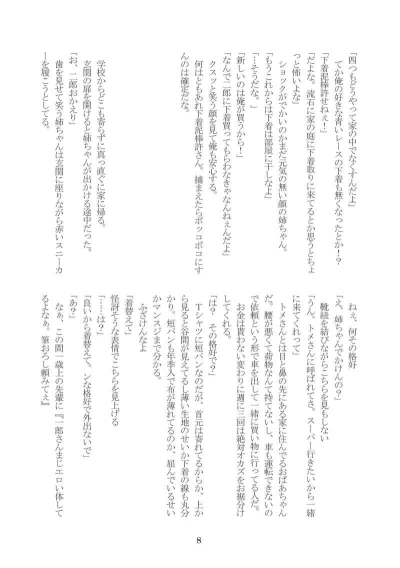 「四つもどうやって家の中でなくすんだよ」
てか俺の好きな青いレースの下着も無くなったとか！？
「下着泥棒許せねぇ！」
「だよな。流石に家の庭に下着取りに来てるとか思うとちょ
っと怖いよな」
ショックがでかいのかまだ元気の無い顔の姉ちゃん。
「もうこれからは下着は部屋に干しなよ」
「…そうだな。」
「新しいのは俺が買うから！」
「なんで二郎に下着買ってもらわなきゃなんねぇんだよ」
クスッと笑う顔を見て俺も安心する。
何はともあれ下着泥棒許さん。捕まえたらボッコボコにす
んのは確定だな。
学校からどこも寄らずに真っ直ぐに家に帰る。
玄関の扉を開けると姉ちゃんが出かける途中だった。
「お、二郎おかえり」
歯を見せて笑う姉ちゃんは玄関に座りながら赤いスニーカ
ーを履こうとしてる。
ねぇ、何その格好
「え、姉ちゃんでかけんの？」
靴紐を結びながらこちらを見もしない
「うん、トメさんに呼ばれてさ。スーパー行きたいから一緒
に来てくれって」
トメさんとは目と鼻の先にある家に住んでるおばあちゃん
だ。腰が悪くて荷物なんて持てないし、車も運転できないの
で依頼という形で車を出して一緒に買い物に行ってる人だ。
お金は貰わない変わりに週に三回は絶対オカズをお裾分け
してくれる。
「は？　その格好で？」
Ｔシャツに短パンなのだが、首元は寄れてるからか、上か
ら見ると谷間が見えてるし薄い生地のせいか下着の線も丸分
かり。短パンも年季入で布が薄れてるのか、屈んでいるせい
かマンスジまで分かる。
ふざけんなよ
「着替えて」
怪訝そうな表情でこちらを見上げる
「……は？」
「良いから着替えて。ンな格好で外出ないで」
「あ？」
なぁ、この間一歳上の先輩に『一郎さんまじエロい体して
るよなぁ。筆おろし頼みてぇ』
8